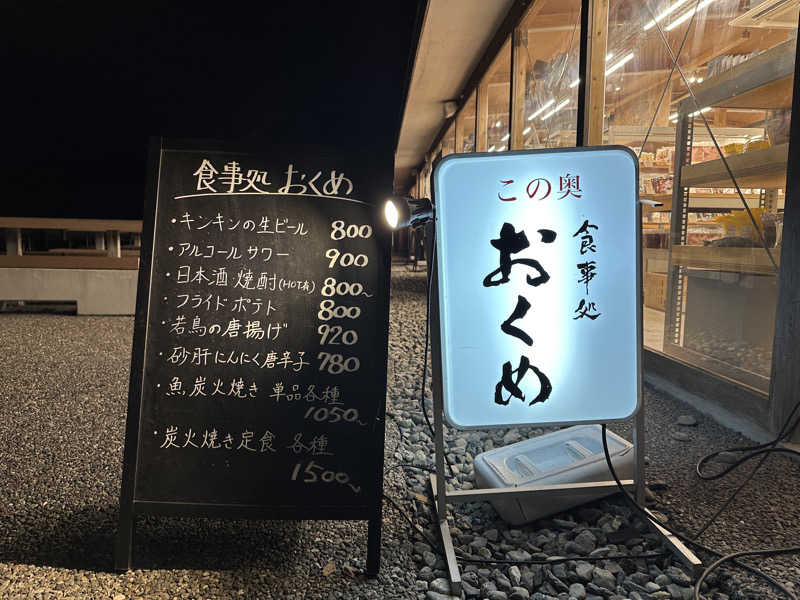 食事処 おくめ
・キンキンの生ビール 800
・アルコールサワー 900
・日本酒・焼酎(HOT有) 800~
・フライドポテト 800
・若鳥の唐揚げ 920
・砂肝にんにく唐辛子 780
・魚、炭火焼き 単品各種
1050~
・炭火焼き定食 各種
1500~
この奥
食事処
おくめ